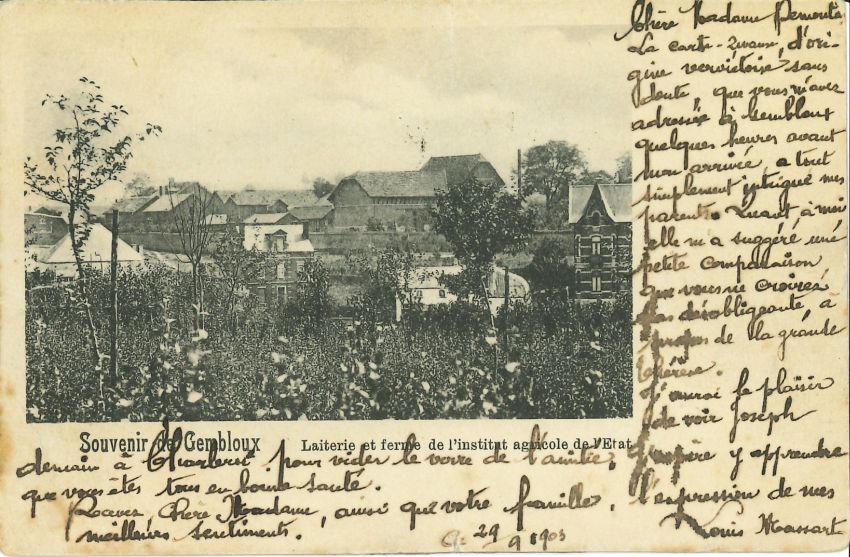 Chère Madame Demoulin
La carte-zwanze, d'ori-
gine verviétoise, sans
doute, que vous m'avez
adressée à Gembloux
quelques heures avant
mon arrivée, a tout
simplement intrigué mes
parents. Quant à moi
elle m'a suggéré une
petite comparaison
que vous ne croirez
pas désobligeante, à
propos de la grande
Thérèse.
J'aurai le plaisir
de voir Joseph
demain à Charleroi pour vider le verre de l'amitié. J'espère y apprendre
que vous êtes tous en bonne santé.
Recevez Chère Madame, ainsi que votre famille, l'expression de mes
meilleurs sentiments.
G. 29/9 1903
Louis Massart
Souvenir de Gembloux
Laiterie et ferme de l'institut agricole de l'Etat